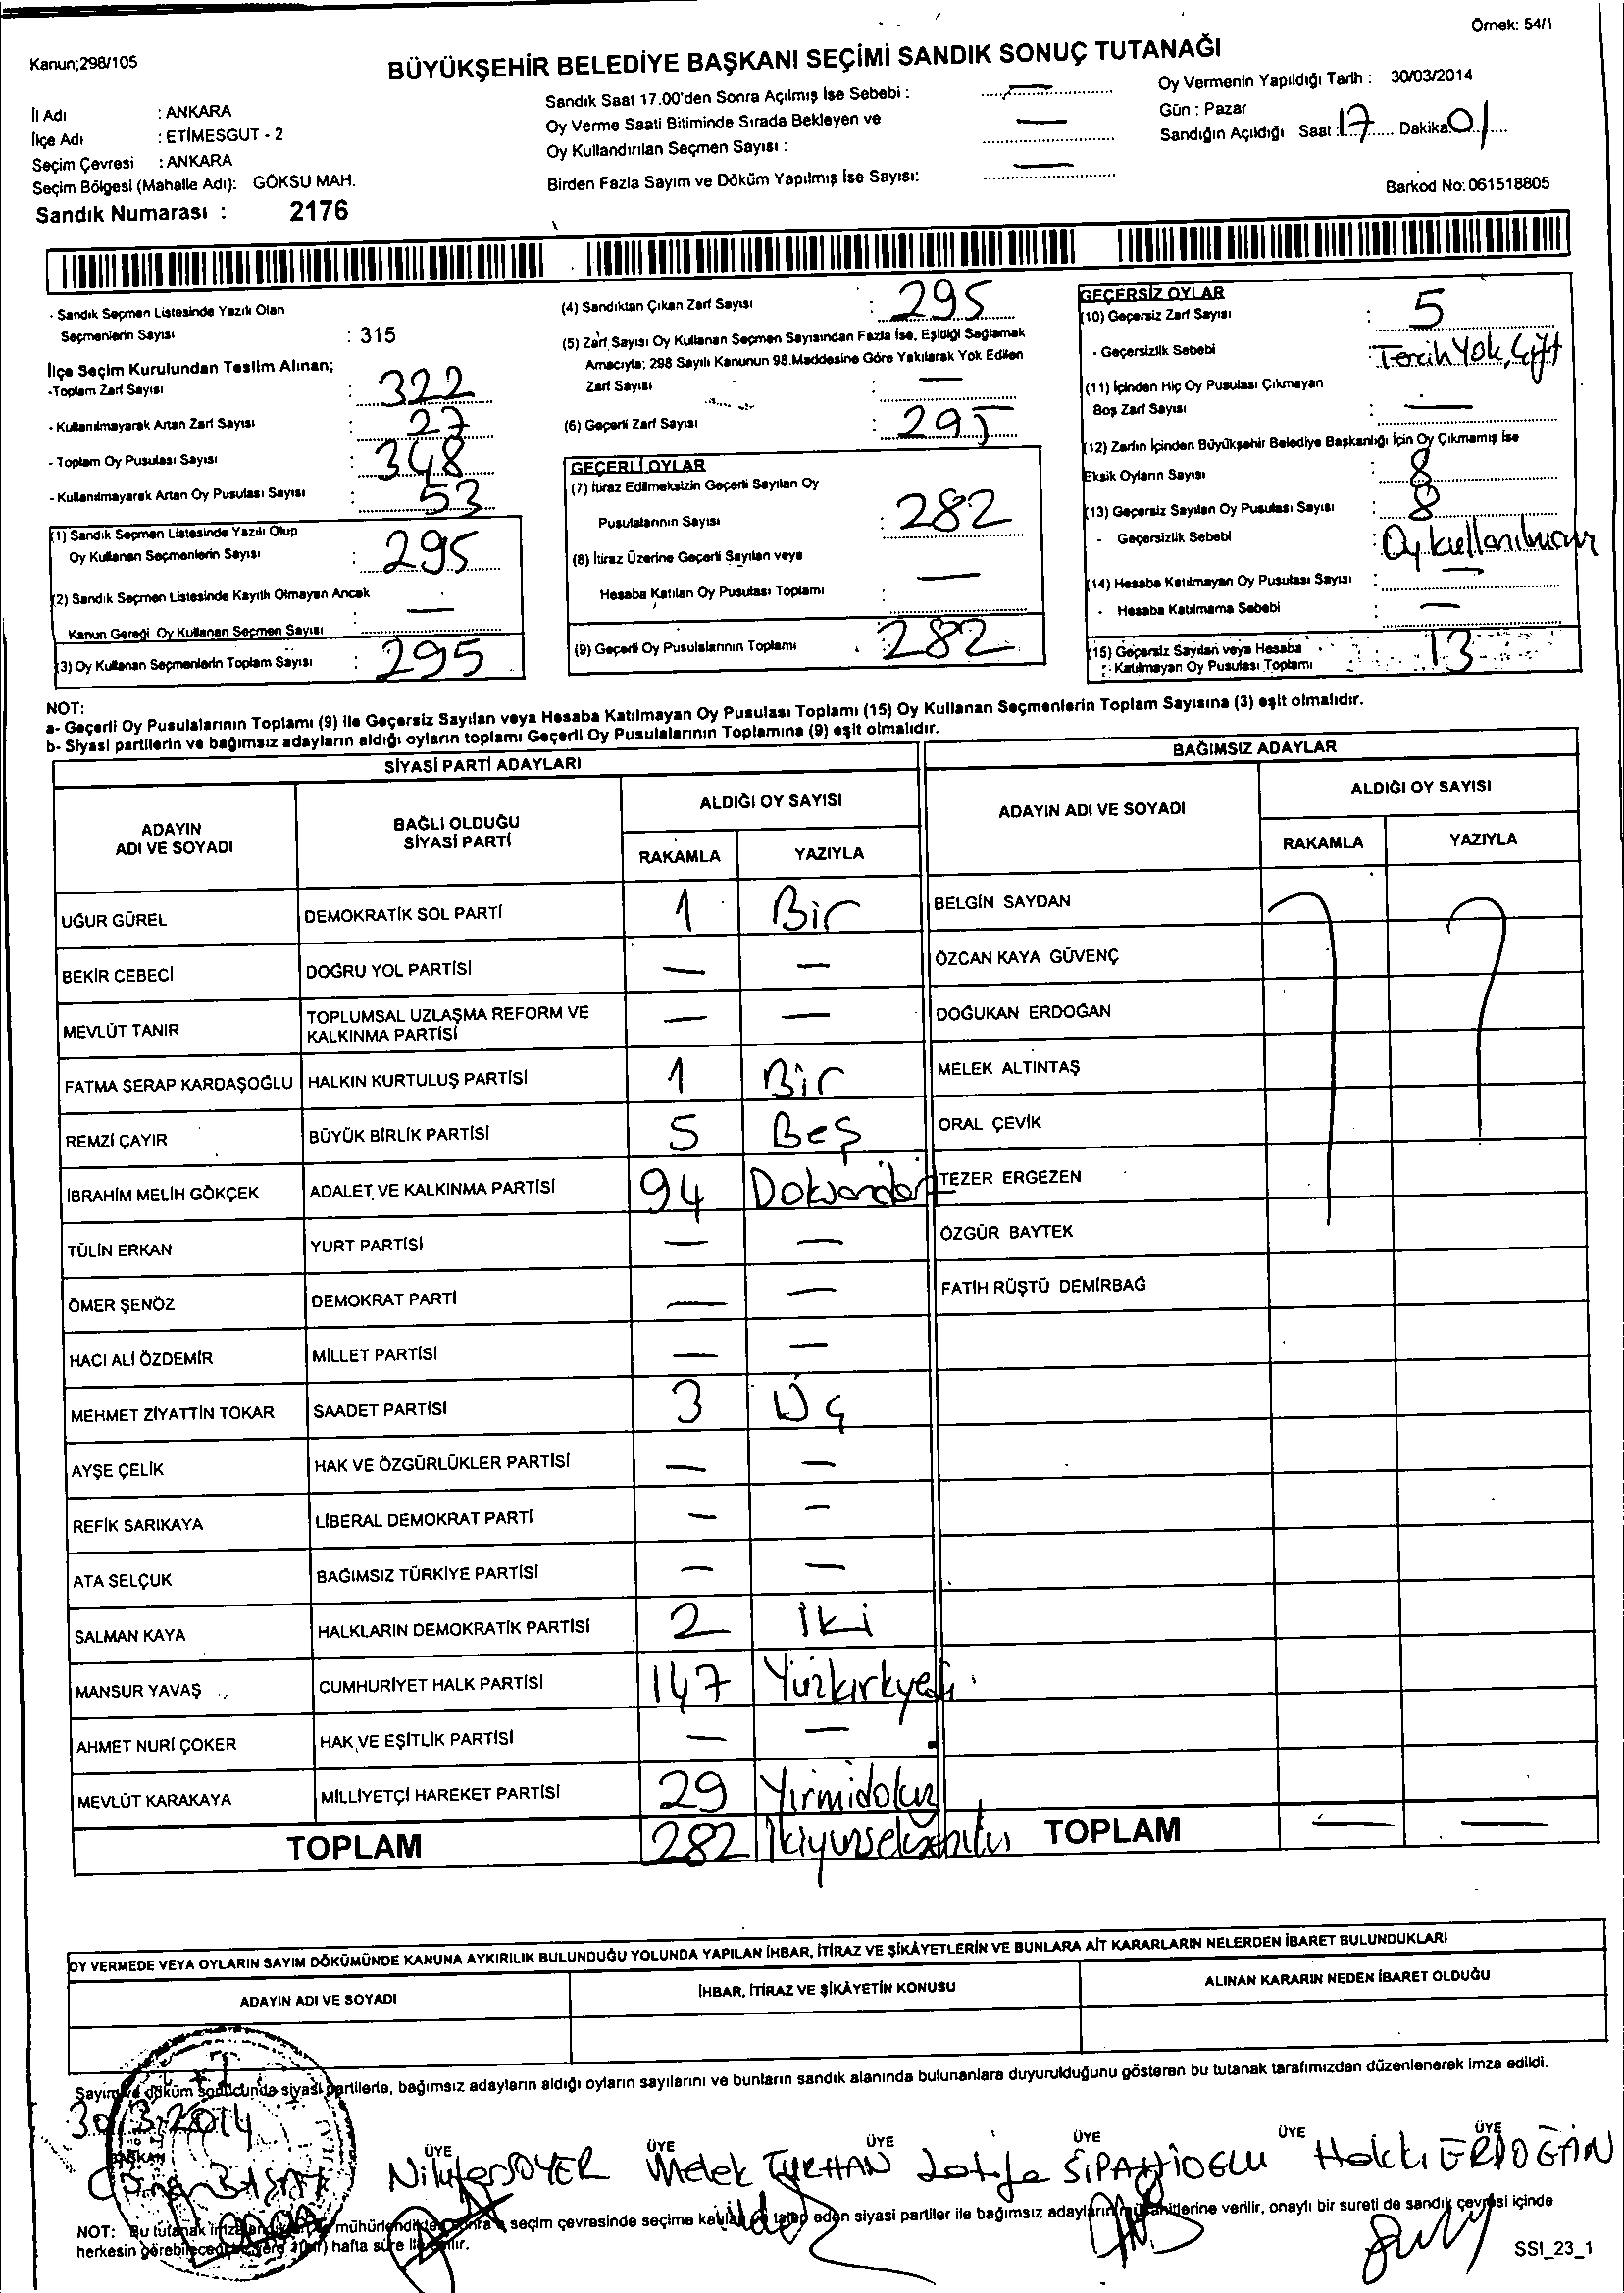 Örnek: 54/1
Kanun;298/105
BÜYÜKŞEHİR BELEDİYE BAŞKANI SEÇİMİ SANDIK SONUÇ TUTANAĞI
İl Adı : ANKARA
İlçe Adı : ETİMESGUT - 2
Seçim Çevresi : ANKARA
Seçim Bölgesi (Mahalle Adı): GÖKSU MAH.
Sandık Numarası : 2176
Sandık Saat 17.00'den Sonra Açılmış İse Sebebi : —
Oy Verme Saati Bitiminde Sırada Bekleyen ve
Oy Kullandırılan Seçmen Sayısı : —
Birden Fazla Sayım ve Döküm Yapılmış İse Sayısı: —
Oy Vermenin Yapıldığı Tarih : 30/03/2014
Gün : Pazar
Sandığın Açıldığı Saat : 17 Dakika 01
Barkod No: 061518805
- Sandık Seçmen Listesinde Yazılı Olan
Seçmenlerin Sayısı : 315
İlçe Seçim Kurulundan Teslim Alınan;
-Toplam Zarf Sayısı : 322
- Kullanılmayarak Artan Zarf Sayısı : 27
- Toplam Oy Pusulası Sayısı : 348
- Kullanılmayarak Artan Oy Pusulası Sayısı : 53
(1) Sandık Seçmen Listesinde Yazılı Olup
Oy Kullanan Seçmenlerin Sayısı : 295
(2) Sandık Seçmen Listesinde Kayıtlı Olmayan Ancak
Kanun Gereği Oy Kullanan Seçmen Sayısı : —
(3) Oy Kullanan Seçmenlerin Toplam Sayısı : 295
(4) Sandıktan Çıkan Zarf Sayısı : 295
(5) Zarf Sayısı Oy Kullanan Seçmen Sayısından Fazla İse, Eşitliği Sağlamak
Amacıyla; 298 Sayılı Kanunun 98.Maddesine Göre Yakılarak Yok Edilen
Zarf Sayısı : —
(6) Geçerli Zarf Sayısı : 295
GEÇERLİ OYLAR
(7) İtiraz Edilmeksizin Geçerli Sayılan Oy
Pusulalarının Sayısı : 282
(8) İtiraz Üzerine Geçerli Sayılan veya
Hesaba Katılan Oy Pusulası Toplamı : —
(9) Geçerli Oy Pusulalarının Toplamı : 282
GEÇERSİZ OYLAR
(10) Geçersiz Zarf Sayısı : 5
- Geçersizlik Sebebi : Tercih Yok, Çift
(11) İçinden Hiç Oy Pusulası Çıkmayan
Boş Zarf Sayısı : —
(12) Zarfın İçinden Büyükşehir Belediye Başkanlığı İçin Oy Çıkmamış İse
Eksik Oyların Sayısı : 8
(13) Geçersiz Sayılan Oy Pusulası Sayısı : 8
- Geçersizlik Sebebi : Oy
(14) Hesaba Katılmayan Oy Pusulası Sayısı : —
- Hesaba Katılmama Sebebi : —
(15) Geçersiz Sayılan veya Hesaba
Katılmayan Oy Pusulası Toplamı : 13
NOT:
a- Geçerli Oy Pusulalarının Toplamı (9) ile Geçersiz Sayılan veya Hesaba Katılmayan Oy Pusulası Toplamı (15) Oy Kullanan Seçmenlerin Toplam Sayısına (3) eşit olmalıdır.
b- Siyasi partilerin ve bağımsız adayların aldığı oyların toplamı Geçerli Oy Pusulalarının Toplamına (9) eşit olmalıdır.
SİYASİ PARTİ ADAYLARI
ADAYIN ADI VE SOYADI BAĞLI OLDUĞU SİYASİ PARTİ ALDIĞI OY SAYISI
RAKAMLA YAZIYLA
UĞUR GÜREL DEMOKRATİK SOL PARTİ 1 Bir
BEKİR CEBECİ DOĞRU YOL PARTİSİ — —
MEVLÜT TANIR TOPLUMSAL UZLAŞMA REFORM VE KALKINMA PARTİSİ — —
FATMA SERAP KARDAŞOĞLU HALKIN KURTULUŞ PARTİSİ 1 Bir
REMZİ ÇAYIR BÜYÜK BİRLİK PARTİSİ 5 Beş
İBRAHİM MELİH GÖKÇEK ADALET VE KALKINMA PARTİSİ 94 Doksandört
TÜLİN ERKAN YURT PARTİSİ — —
ÖMER ŞENÖZ DEMOKRAT PARTİ — —
HACI ALİ ÖZDEMİR MİLLET PARTİSİ — —
MEHMET ZİYATTİN TOKAR SAADET PARTİSİ 3 Üç
AYŞE ÇELİK HAK VE ÖZGÜRLÜKLER PARTİSİ — —
REFİK SARIKAYA LİBERAL DEMOKRAT PARTİ — —
ATA SELÇUK BAĞIMSIZ TÜRKİYE PARTİSİ — —
SALMAN KAYA HALKLARIN DEMOKRATİK PARTİSİ 2 İki
MANSUR YAVAŞ CUMHURİYET HALK PARTİSİ 147 Yüzkırkyedi
AHMET NURİ ÇOKER HAK VE EŞİTLİK PARTİSİ — —
MEVLÜT KARAKAYA MİLLİYETÇİ HAREKET PARTİSİ 29 Yirmidokuz
TOPLAM 282 İkiyüzsekseniki
BAĞIMSIZ ADAYLAR
ADAYIN ADI VE SOYADI ALDIĞI OY SAYISI
RAKAMLA YAZIYLA
BELGİN SAYDAN
ÖZCAN KAYA GÜVENÇ
DOĞUKAN ERDOĞAN
MELEK ALTINTAŞ
ORAL ÇEVİK
TEZER ERGEZEN
ÖZGÜR BAYTEK
FATİH RÜŞTÜ DEMİRBAĞ
TOPLAM — —
OY VERMEDE VEYA OYLARIN SAYIM DÖKÜMÜNDE KANUNA AYKIRILIK BULUNDUĞU YOLUNDA YAPILAN İHBAR, İTİRAZ VE ŞİKÂYETLERİN VE BUNLARA AİT KARARLARIN NELERDEN İBARET BULUNDUKLARI
ADAYIN ADI VE SOYADI İHBAR, İTİRAZ VE ŞİKÂYETİN KONUSU ALINAN KARARIN NEDEN İBARET OLDUĞU
Sayım ve döküm sonucunda siyasi partilerle, bağımsız adayların aldığı oyların sayılarını ve bunların sandık alanında bulunanlara duyurulduğunu gösteren bu tutanak tarafımızdan düzenlenerek imza edildi.
30.3.2014
BAŞKAN ÜYE ÜYE ÜYE ÜYE ÜYE ÜYE
Nilüfer SOYER Melek TURHAN Latife SİPAHİOĞLU Hakkı ERDOĞAN
NOT: Bu tutanak mühürlendikten sonra seçim çevresinde seçime katılan ve talep eden siyasi partiler ile bağımsız adayların müşahitlerine verilir, onaylı bir sureti de sandık çevresi içinde
herkesin görebileceği hafta süre ile
SSI_23_1